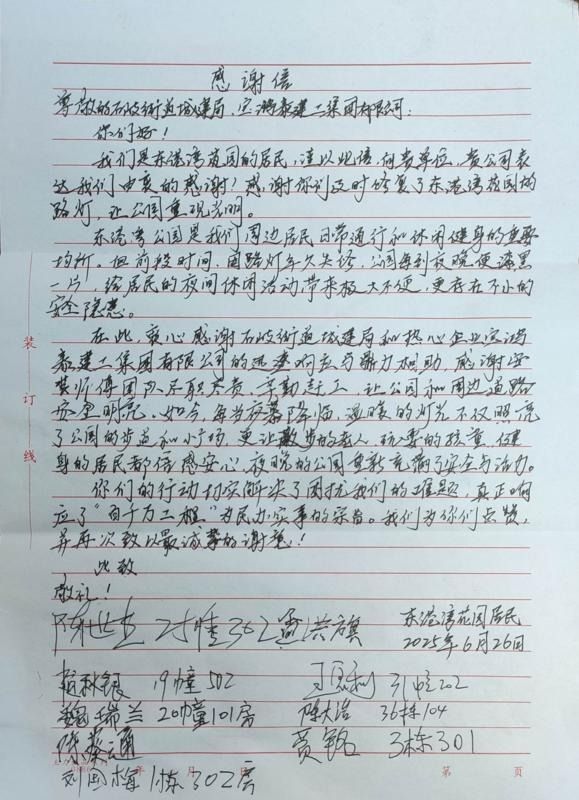 感谢信
尊敬的石岐街道城建局，宏鸿嘉建工集团有限公司：
你们好！
我们是东港湾花园的居民，谨以此信向贵单位，贵公司表
达我们由衷的感谢！感谢你们及时修复了东港湾花园的
路灯，让公园重现光明。
东港湾公园是我们周边居民日常通行和休闲健身的重要
场所。但前段时间，因路灯年久失修，公园每到夜晚便漆黑
一片，给居民的夜间休闲活动带来极大不便，更存在不小的
安全隐患。
在此，衷心感谢石岐街道城建局和热心企业宏鸿
嘉建工集团有限公司的迅速响应与鼎力相助，感谢安
装师傅团队尽职尽责，辛勤赶工，让公园和周边道路
安全明亮。如今，每当夜幕降临，温暖的灯光不仅照亮
了公园的步道和小广场，更让散步的老人，玩耍的孩童，健
身的居民都倍感安心，夜晚的公园重新充满了安全与活力。
你们的行动切实解决了困扰我们的难题，真正响
应了“百千万工程”为民办实事的宗旨。我们为你们点赞，
并再次致以最诚挚的谢意！
此致
敬礼！
东港湾花园居民
2025年6月26日
陈 2幢302 孟洪旗
秋银 19幢502
31幢202
魏瑞兰 20幢101房
陈大浩 36栋104
陈葵通
贾铭 3栋301
刘国梅 1栋302房
装
订
线
年 月 日
第 页